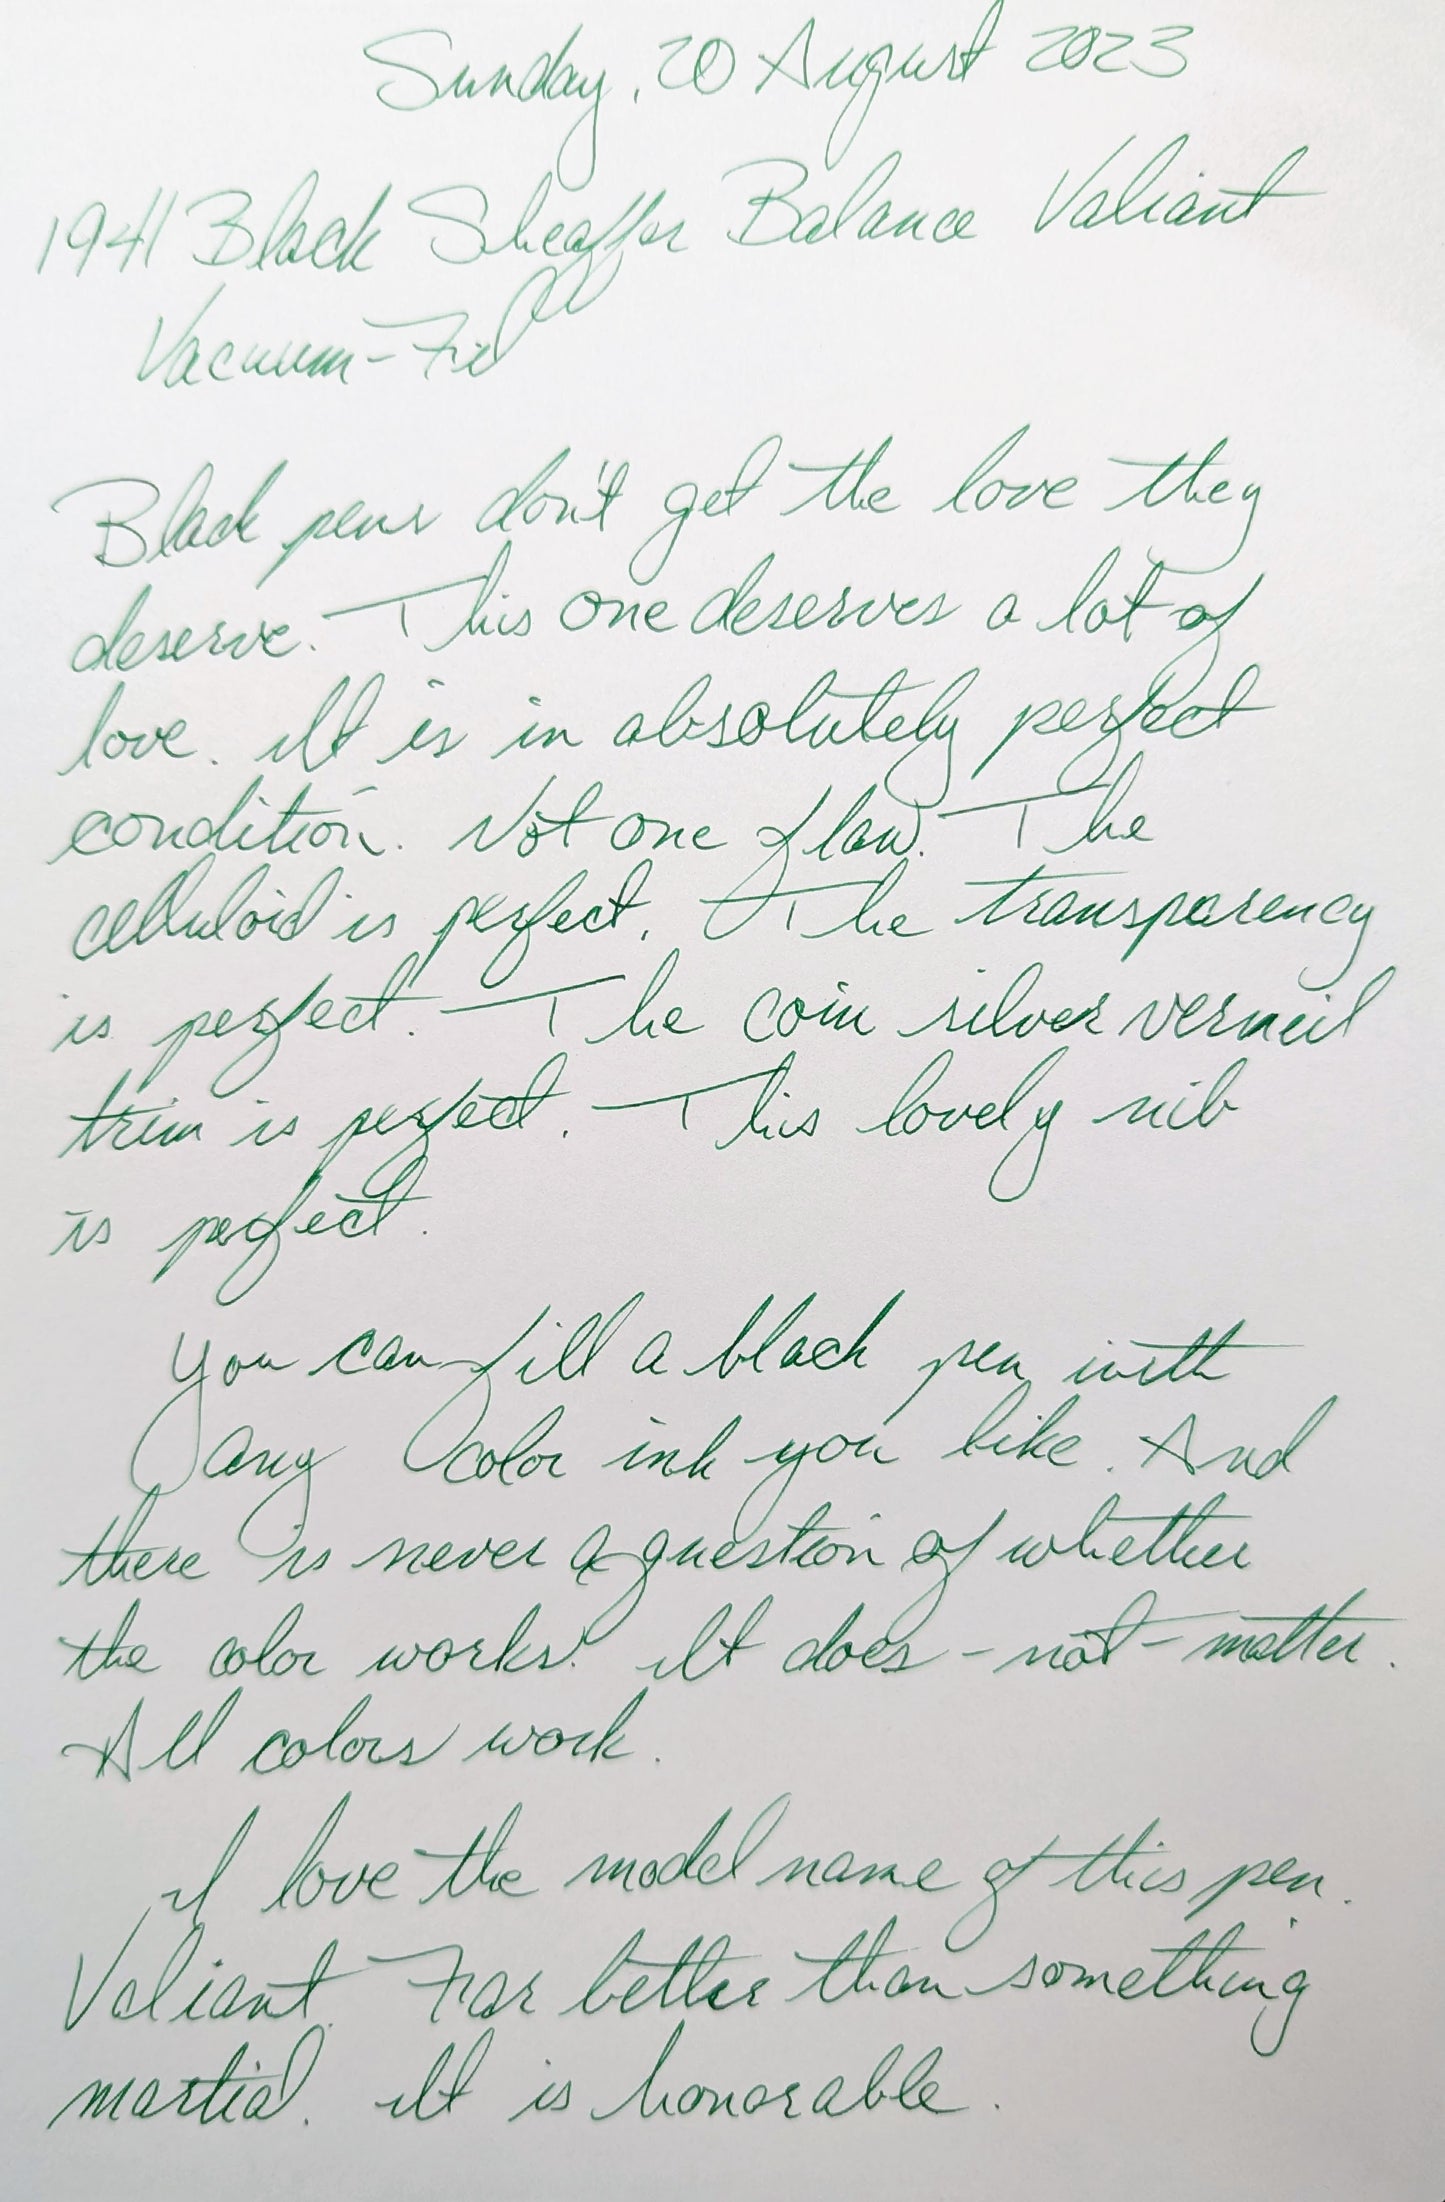 Sunday, 20 August 2023
1941 Black Sheaffer Balance Valiant
Vacuum-Fil
Black pens don't get the love they
deserve. This one deserves a lot of
love. It is in absolutely perfect
condition. Not one flaw. The
celluloid is perfect. The transparency
is perfect. The coin silver vermeil
trim is perfect. This lovely nib
is perfect.
You can fill a black pen with
any color ink you like. And
there is never a question of whether
the color works. It does - not - matter.
All colors work.
I love the model name of this pen.
Valiant. Far better than something
martial. It is honorable.